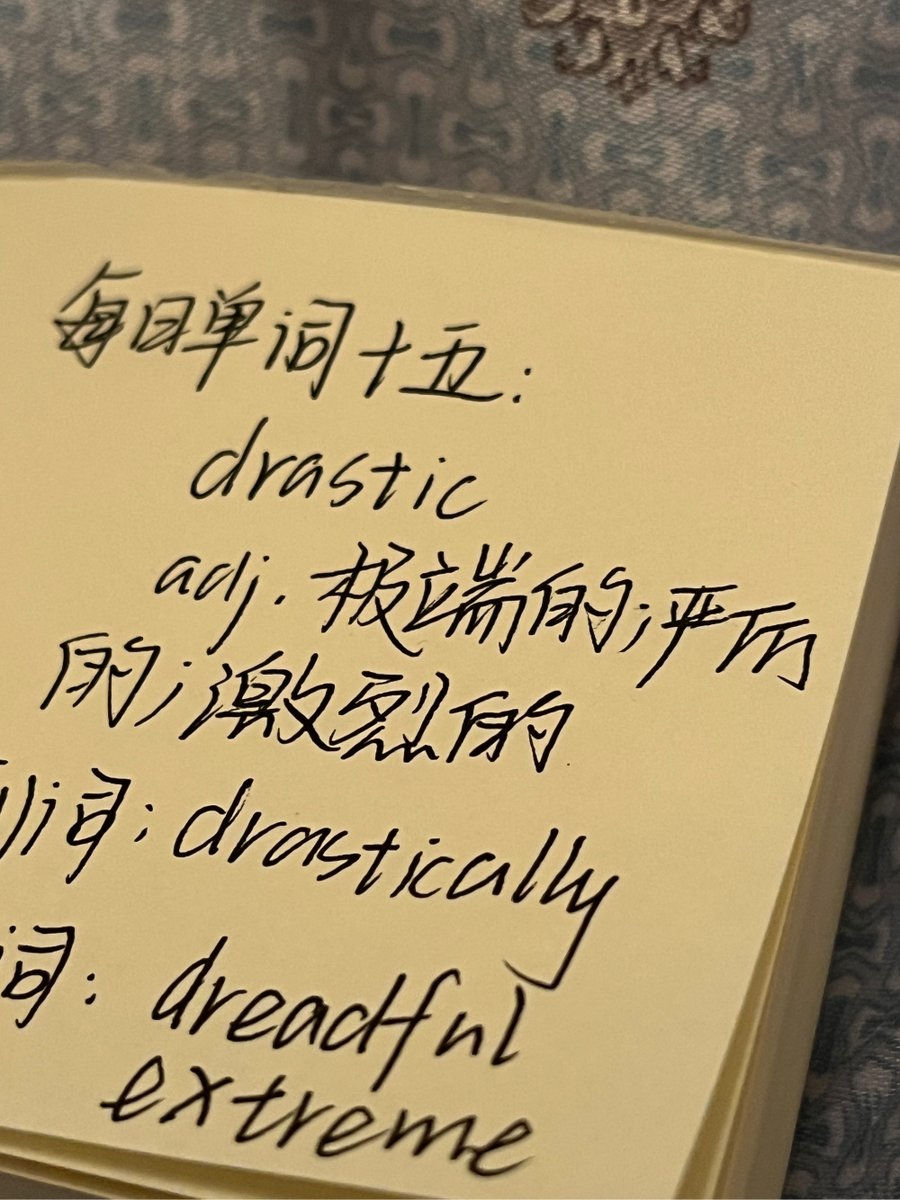 每日单词十五:
drastic
adj. 极端的;严厉
的;激烈的
词: drastically
词: dreadful
extreme